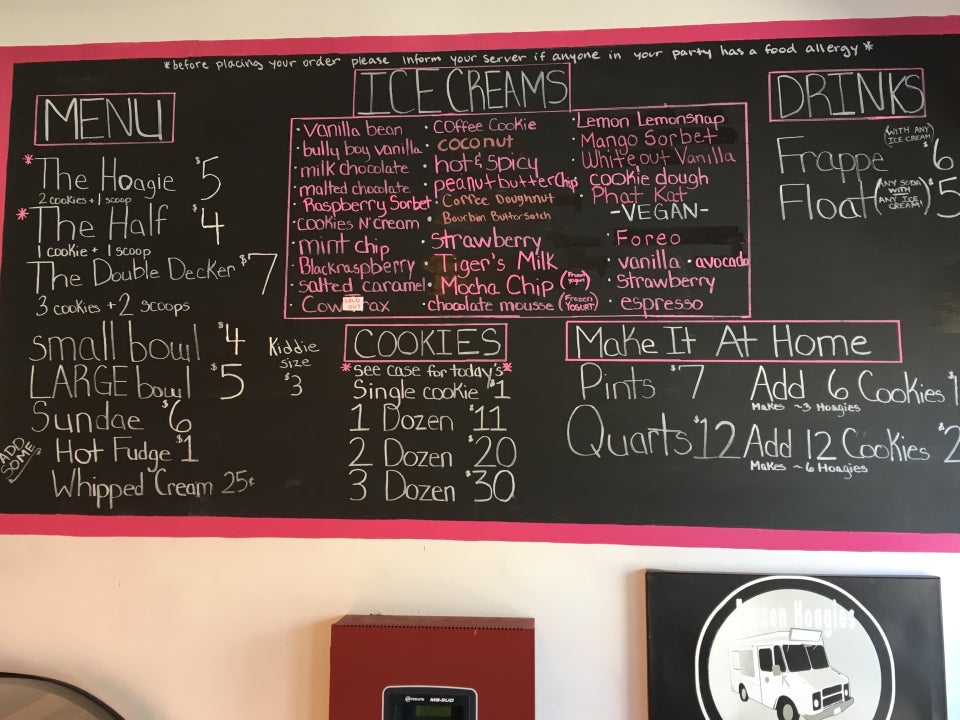 *before placing your order please inform your server if anyone in your party has a food allergy*
MENU
*The Hoagie $5
2 cookies + 1 scoop
*The Half $4
1 cookie + 1 scoop
The Double Decker $7
3 cookies + 2 scoops
small bowl $4
LARGE bowl $5
Kiddie
size
$3
Sundae $6
ADD
SOME
Hot Fudge $1
Whipped Cream 25¢
ICE CREAMS
• vanilla bean
• bully boy vanilla
• milk chocolate
• malted chocolate
• Raspberry Sorbet
• Cookies N' Cream
• mint chip
• Blackraspberry
• salted caramel
• Cow
SOLD
OUT
rax
• Coffee Cookie
• coconut
• hot & spicy
• peanut butter chip
• Coffee Doughnut
• Bourbon Butterscotch
• strawberry
• Tiger's Milk
• Mocha Chip (Frozen Yogurt)
• chocolate mousse (Frozen Yogurt)
• Lemon Lemonsnap
• Mango Sorbet
• White out Vanilla
• cookie dough
• Phat Kat
-VEGAN-
• Foreo
• vanilla • avocado
• strawberry
• espresso
DRINKS
Frappe (WITH ANY ICE CREAM) $6
Float (ANY SODA WITH ANY ICE CREAM!) $5
COOKIES
*see case for today's*
Single cookie $1
1 Dozen $11
2 Dozen $20
3 Dozen $30
Make It At Home
Pints $7 Add 6 Cookies $1
Makes ~3 Hoagies
Quarts $12 Add 12 Cookies $2
Makes ~6 Hoagies
MS-5UD
Frozen Hoagies